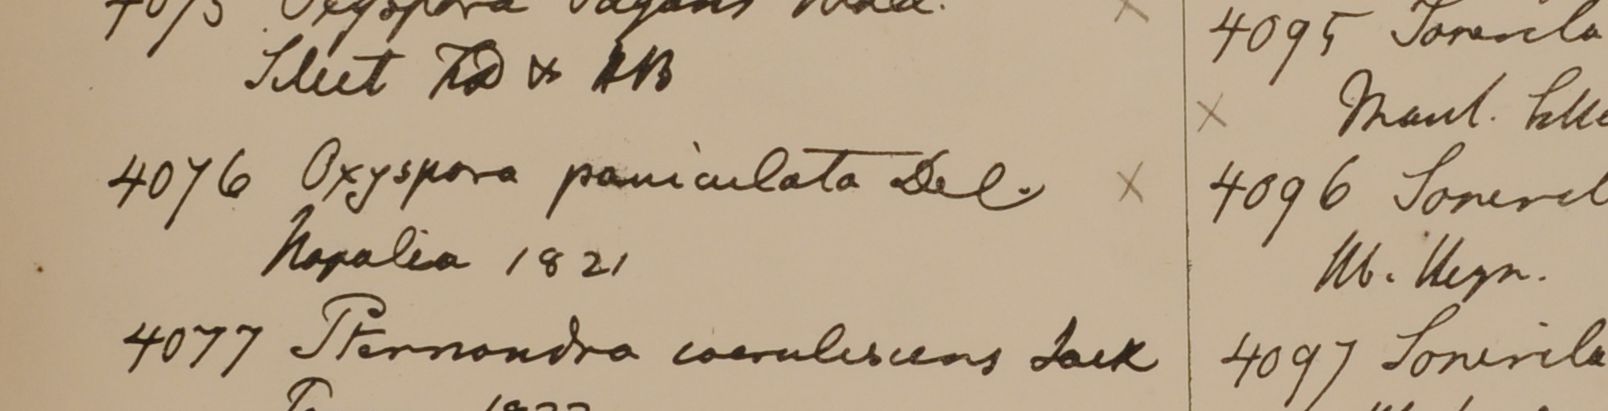 4075 Oxyspora vagans Wall.
Silet FD & HB
4076 Oxyspora paniculata Del.
Napalia 1821
4077 Pternandra coerulescens Jack
4095 Sonerila
Maul.
4096 Soneril
4097 Sonerila